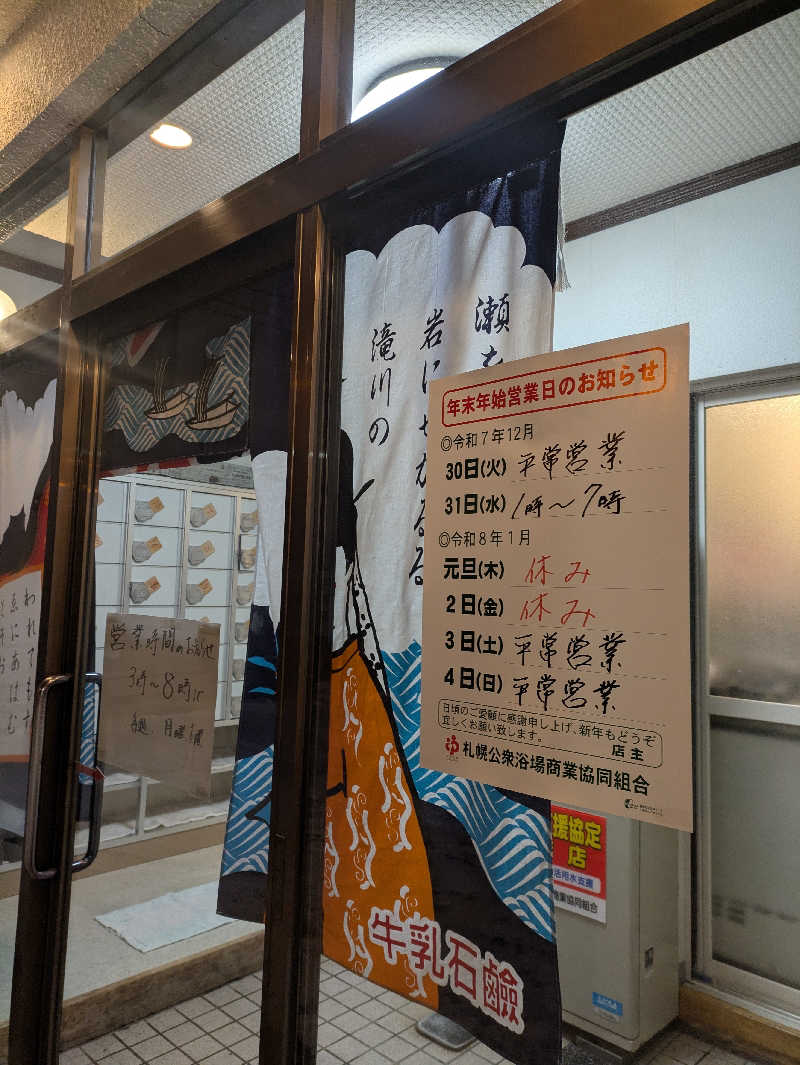 年末年始営業日のお知らせ
◎令和7年12月
30日(火) 平常営業
31日(水) 1時〜7時
◎令和8年1月
元旦(木) 休み
2日(金) 休み
3日(土) 平常営業
4日(日) 平常営業
日頃のご愛顧に感謝申し上げ、新年もどうぞ
宜しくお願い致します。 店主
札幌公衆浴場商業協同組合
瀬を
岩にせかるる
滝川の
牛乳石鹸
営業時間のお知らせ
3時〜8時
月曜
われても
すゑにあはむ
とぞお
援協定
店
活用水支援
業協同組合